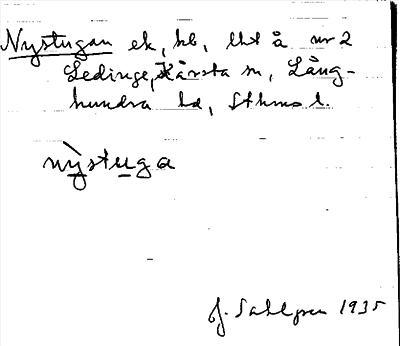 Nystugan ek, hb, lht å nr 2
Ledinge, Kårsta sn, Lång-
hundra hd, Sthms l.
nỳstuga
J. Sahlgren 1935